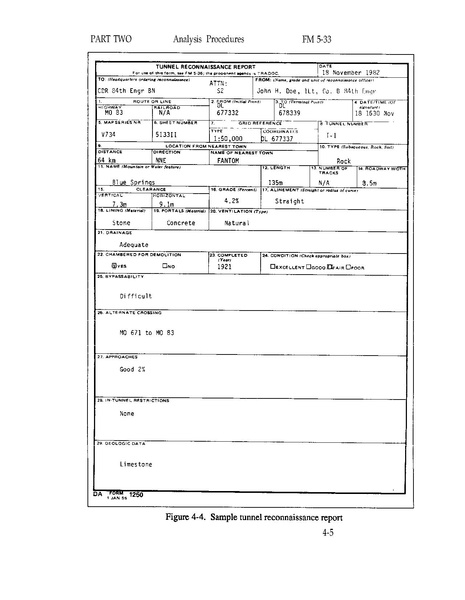 PART TWO Analysis Procedures FM 5-33
TUNNEL RECONNAISSANCE REPORT
For use of this form, see FM 5-36; the proponent agency is TRADOC.
DATE
18 November 1982
TO: (Headquarters ordering reconnaissance)
CDR 84th Engr BN
ATTN:
S2
FROM: (Name, grade and unit of reconnaissance officer)
John H. Doe, 1Lt, Co. B 84th Engr
1. ROUTE OR LINE
HIGHWAY
MO 83
RAILROAD
N/A
2. FROM (Initial Point)
DL
677332
3. TO (Terminal Point)
DL
678339
4. DATE/TIME (Of signature)
18 1630 Nov
5. MAP SERIES NR.
V734
6. SHEET NUMBER
5133II
7. GRID REFERENCE
TYPE
1:50,000
COORDINATES
DL 677337
8. TUNNEL NUMBER
T-1
9. LOCATION FROM NEAREST TOWN
DISTANCE
64 km
DIRECTION
NNE
NAME OF NEAREST TOWN
FANTOM
10. TYPE (Subaqueous, Rock, Soil)
Rock
11. NAME (Mountain or Water feature)
Blue Springs
12. LENGTH
135m
13. NUMBER OF TRACKS
N/A
14. ROADWAY WIDTH
8.5m
15. CLEARANCE
VERTICAL
7.3m
HORIZONTAL
9.1m
16. GRADE (Percent)
4.2%
17. ALINEMENT (Straight or radius of curve)
Straight
18. LINING (Material)
Stone
19. PORTALS (Material)
Concrete
20. VENTILATION (Type)
Natural
21. DRAINAGE
Adequate
22. CHAMBERED FOR DEMOLITION
YES NO
23. COMPLETED (Year)
1921
24. CONDITION (Check appropriate box)
EXCELLENT GOOD FAIR POOR
25. BYPASSABILITY
Difficult
26. ALTERNATE CROSSING
MO 671 to MO 83
27. APPROACHES
Good 2%
28. IN-TUNNEL RESTRICTIONS
None
29. GEOLOGIC DATA
Limestone
DA FORM 1250
1 JAN 55
Figure 4-4. Sample tunnel reconnaissance report
4-5